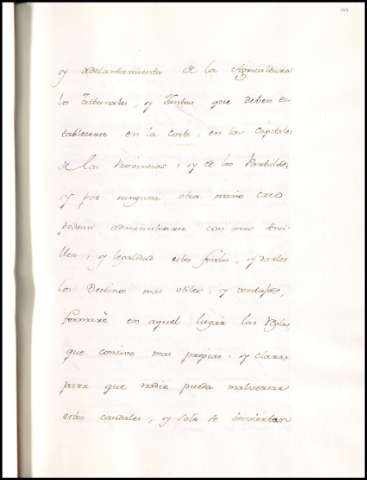 y adelantamiento de la Agricultura
los Tribunales, y Juntas que deben es
tablecerse en la Corte, en las Capitales
de las Provincias, y de los Partidos,
y por ninguna otra mano creo
podran administrarse con mas senci
llez, y legalidad estos fondos, y darles
los Destinos mas utiles, y ventajosos,
formaré en aquel lugar las Reglas
que concivo mas propias, y claras,
para que nadie pueda malversar
estos caudales, y solo se inviertan